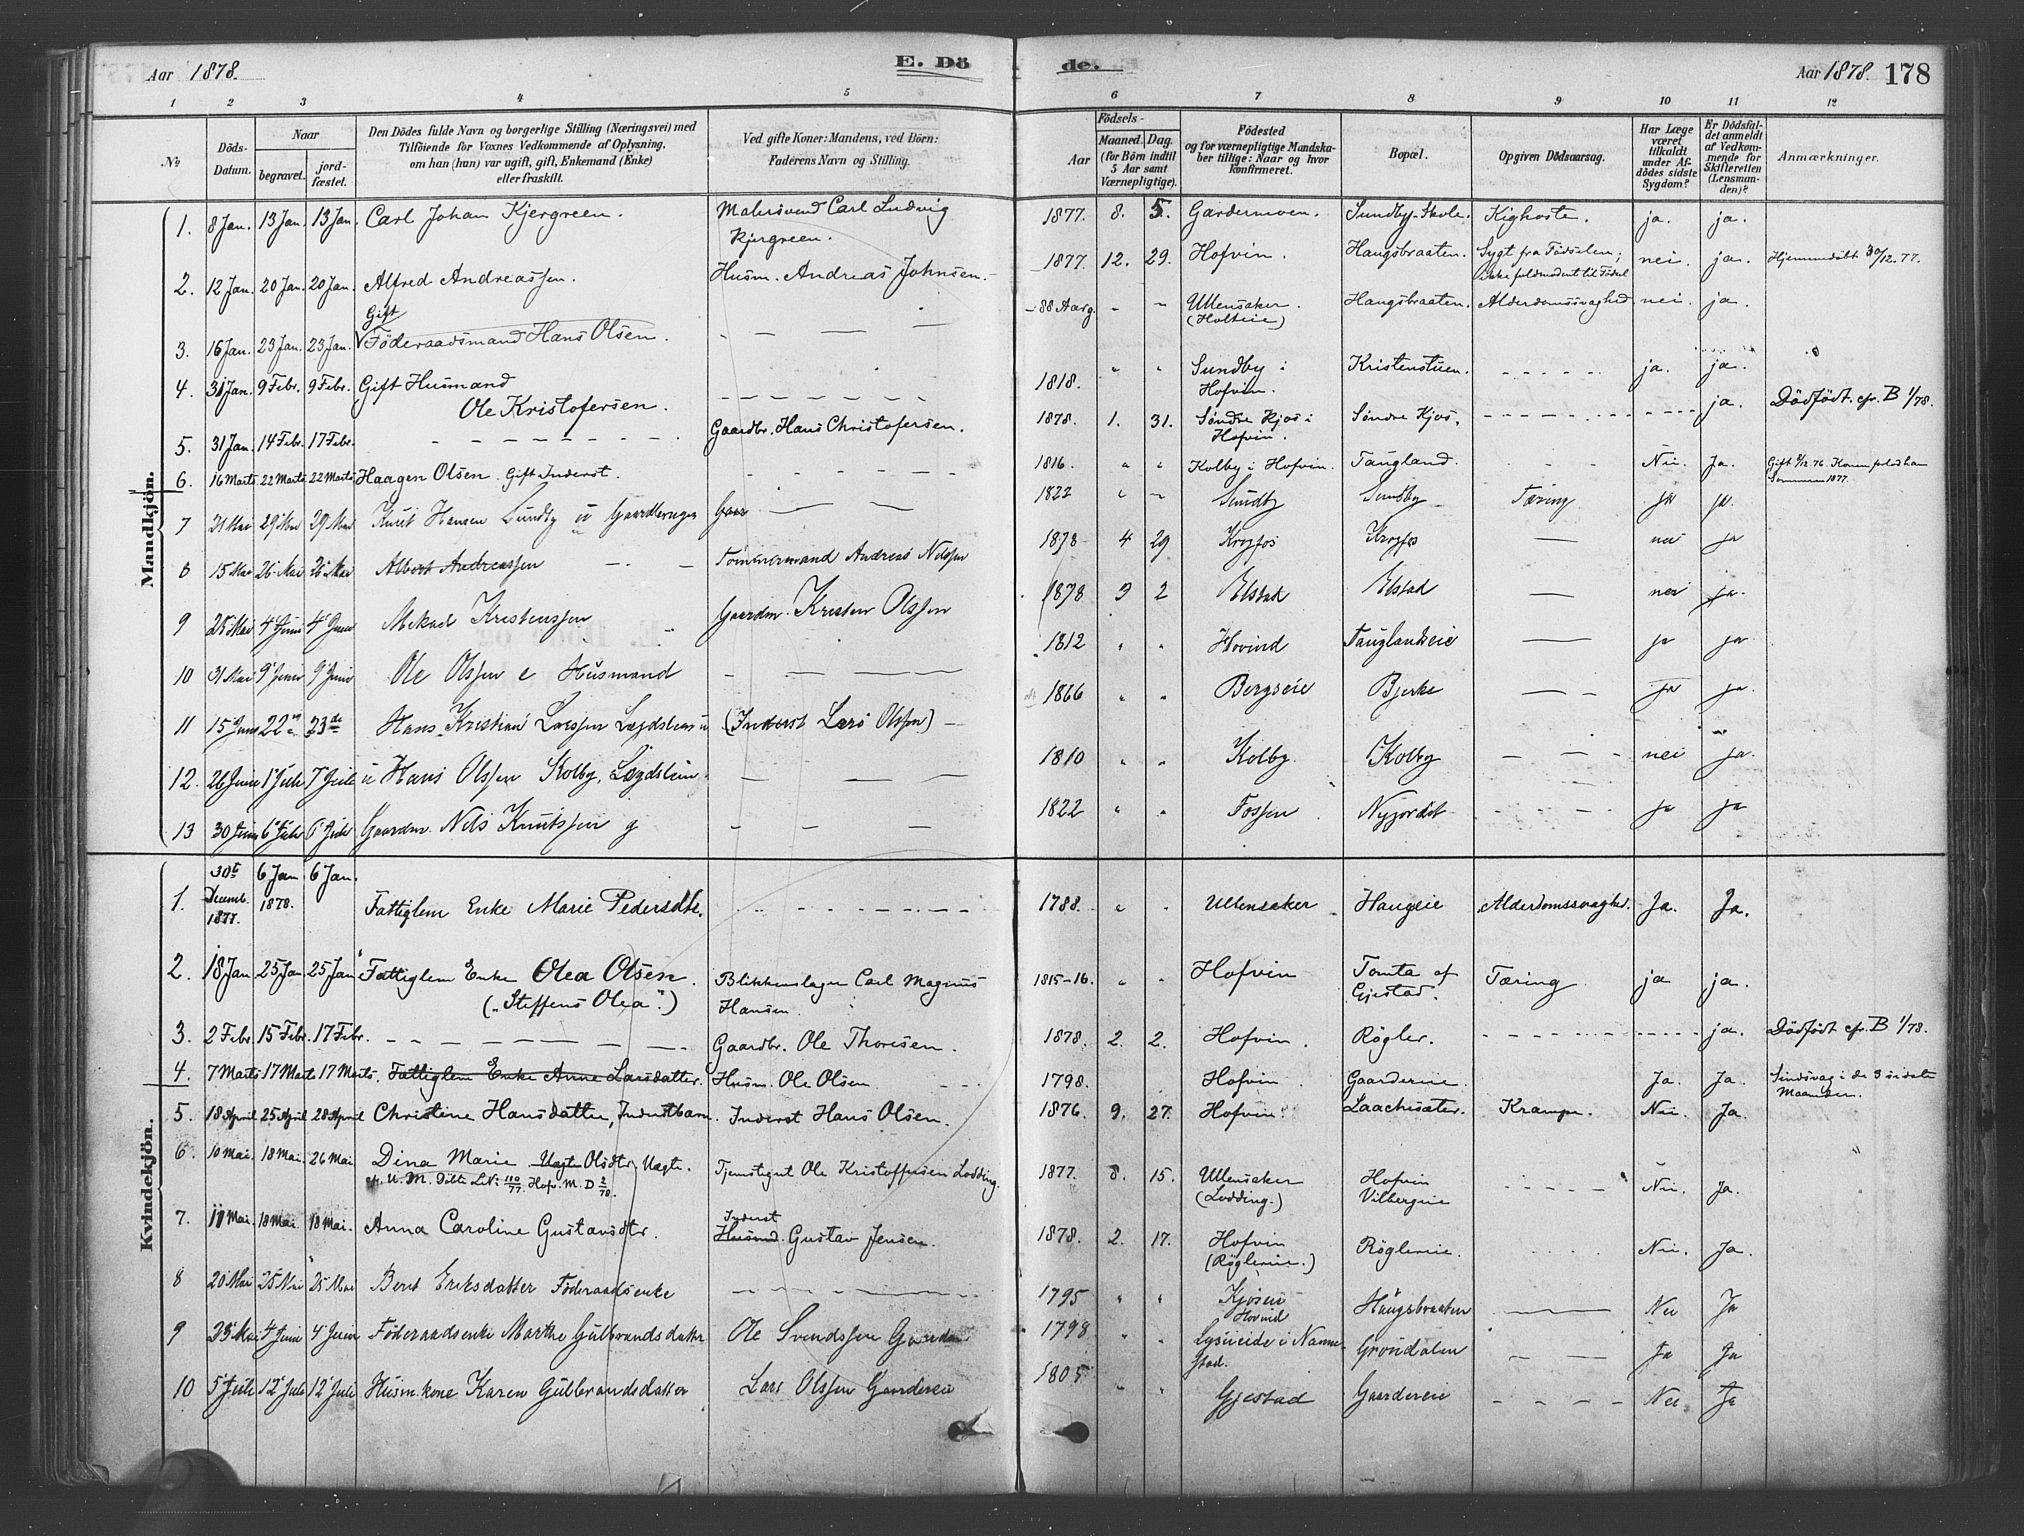 Aar 1878.
E. Dö
de.
Aar 1878. 178
1 2 3 4 5 6 7 8 9 10 11 12
No
Döds-Datum.
Naar
begravet.
jord-fæstet.
Den Dödes fulde Navn og borgerlige Stilling (Næringsvei) med
Tilföiende for Voxnes Vedkommende af Oplysning,
om han (hun) var ugift, gift, Enkemand (Enke)
eller fraskilt.
Ved gifte Koner: Mandens, ved Börn:
Faderens Navn og Stilling.
Födsels-
Aar
Maaned. Dag.
(for Börn indtil
5 Aar samt
Værnepligtige).
Födested
og for værnepligtige Mandska-
ber tillige: Naar og hvor
konfirmeret.
Bopæl.
Opgiven Dödsaarsag.
Har Læge
været
tilkaldt
under Af-
dödes sidste
Sygdom?
Er Dödsfal-
det anmeldt
af Vedkom-
mende for
Skifteretten
(Lensman-
den)?
Anmærkninger.
Mandkjön.
1. 8 Jan. 13 Jan. 13 Jan. Carl Johan Kjergreen. Malersvend Carl Ludvig Kjergreen. 1877. 8. 5. Gardermoen. Sundby Skole. Kighoste. ja. ja.
2. 12 Jan. 20 Jan. 20 Jan. Alfred Andreassen. Husm. Andreas Johnsen. 1877. 12. 29. Hofvin. Haugsbraaten. Sygt fra Födselen; nei. ja. Hjemmedöbt 30/12.77.
3. 16 Jan. 23 Jan. 23 Jan. Gift Föderaadsmand Hans Olsen. 88 Aar g. " " Ullensaker. (Holteie) Haugsbraaten. Alderdomssvaghed nei. ja.
4. 31 Jan. 9 Febr. 9 Febr. Gift Husmand Ole Kristofersen. 1818. " " Sundby i Hofvin. Kristenstuen. ja. ja.
5. 31 Jan. 14 Febr. 17 Febr. Gaardbr. Hans Christofersen. 1878. 1. 31. Søndre Kjos i Hofvin. Søndre Kjos. ja. Dödfödt cfr. B 1/78.
6. 16 Marts 22 Marts 22 Marts Haagen Olsen. Gift Inderst. 1816. " " Kolby i Hofvin. Taugland. Nei. Ja. Gift Konen Sommeren 1877.
7 21 Mai 29 Mai 29 Mai Knut Hansen Sundby 1822 " " Sundby Sundby Tæring ja ja.
8 15 Mai 26 Mai 26 Mai Albert Andreassen Tömmermand Andreas Nilssen 1878 4 29 Krogfos Krogfos nei ja
9 25 Mai 4 Juni 4 Juni Kristenssen Gaardm. Kristen Olssen 1878 2 Elstad Elstad nei ja.
10 31 Mai 9 Juni 9 Juni Ole Olssen e Husmand 1812 " " Hovind Tauglandseie ja ja
11 15 Juni 22 23de Hans Kristian Larssen Lægdslem u (Inderst Lars Olssen) 1866 " " Bergseie Bjerke ja ja.
12. 26 Juni 1 Juli 7 Juli u Hans Olssen Kolby, Lægdslem. 1810 " " Kolby Kolby nei ja.
13 30 Juni 6 Juli 6 Juli Gaardm. Nils Knutssen g 1822 " " Fossen ja ja
Kvindekjön.
1. 30te Decemb. 1877. 6 Jan 1878. 6 Jan. Fattiglem Enke Marie Pedersdtr. 1788. " " Ullensaker Haugeie Alderdomssvaghed. Ja. Ja.
2. 18 Jan 25 Jan 25 Jan Fattiglem Enke Olea Olsen. („Steffens Olea".) Blikkenslager Carl Magnus Hansen. 1815-16. " " Hofvin Tomta af Gjestad. Tæring ja ja.
3. 2 Febr 15 Febr. 17 Febr. Gaardbr. Ole Thoresen. 1878. 2. 2. Hofvin. Røgler. ja. Dödfödt cfr. B 1/78.
4. 7 Marts 17 Marts 17 Marts. Fattiglem Enke Anne Larsdatter. Husm. Ole Olsen 1798. Hofvin. Gaardereie. Ja. Ja. Sindsvag i de 3 sidste Maaneder.
5. 18 April 25 April 28 April Christine Hansdatter, Inderstbarn. Inderst Hans Olsen. 1876. 9. 27. Hofvin. Laachesæter. Krampe. Nei. Ja.
6. 10 Mai. 18 Mai. 26 Mai Dina Marie Uægte Olsdtr. Uægte. Tjenstgut Ole Kristoffersen Lodding. 1877. 8. 15. Ullensaker (Lodding.) Hofvin Vilbergeie Nei. Ja.
7. 11 Mai. 18 Mai. 18 Mai. Anna Caroline Gustavsdtr. Inderst Husmd. Gustav Jensen. 1878. 2. 17. Hofvin (Røglereie.) Røglereie. Nei. Ja.
8 20 Mai 25 Mai 25 Mai Berit Eriksdatter Föderaadsenke 1795 " " Kjosen Hovind Haugsbraaten Nei Ja
9 25 Mai 4 Juni 4 Juni Föderaadsenke Marthe Gulbrandsdatter Ole Svendssen 1798 i Nannestad. Gröndalen Ja Ja
10 5 Juli 12 Juli 12 Juli Husm.kone Karen Gulbrandsdatter Lars Olssen Gaardereie 1805 " " Gjestad Gaardereie Nei Ja